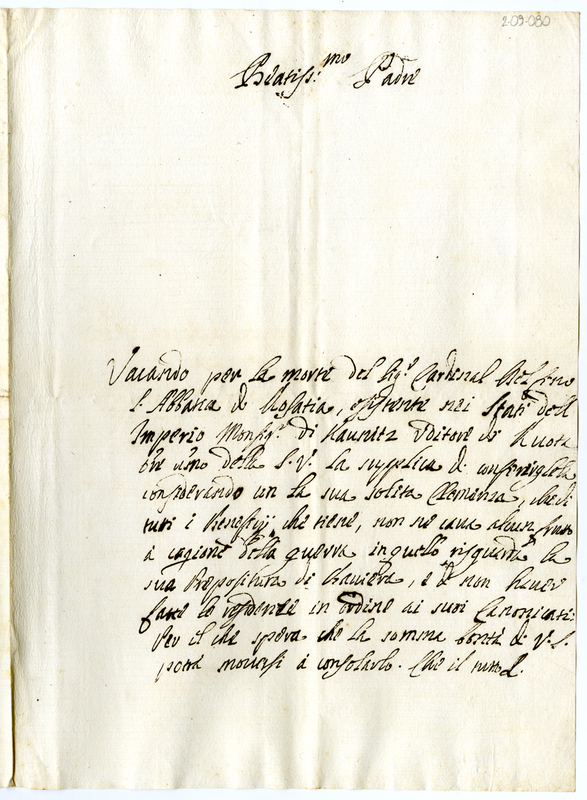 2-09-080
Beatiss:mo Padre
Vacando per la morte del Sigr Cardinal Delfino
l'Abbatia di Rosatia, esistente nei Stati dell
Imperio Monsigr di Kaunitz Uditore di Ruota
della S. V. la supplica di conferirgliela
considerando con la sua solita Clemenza, che di
tutti i Benefitij che tiene, non ne cava alcun frutto
à cagione della guerra in quello risguarda la
sua Prepositura di Baviera, e di non haver
fatte le residenze in ordine ai suoi Canonicati:
Per il che spera che la somma bontà di V. S.
potrà moversi à consolarlo. Che il tutto